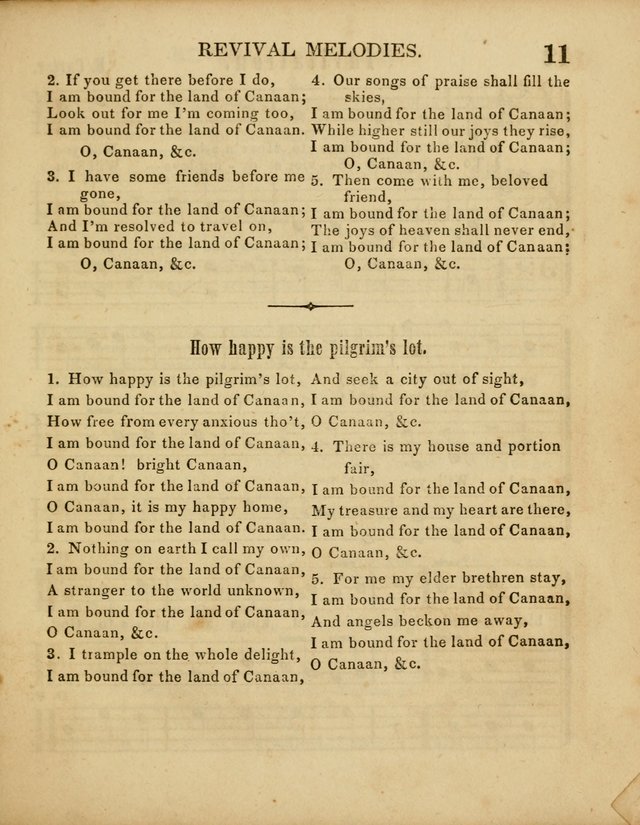 REVIVAL MELODIES.
11
2. If you get there before I do,
I am bound for the land of Canaan;
Look out for me I'm coming too,
I am bound for the land of Canaan.
O, Canaan, &c.
3. I have some friends before me
gone,
I am bound for the land of Canaan;
And I'm resolved to travel on,
I am bound for the land of Canaan;
O, Canaan, &c.
4. Our songs of praise shall fill the
skies,
I am bound for the land of Canaan;
While higher still our joys they rise,
I am bound for the land of Canaan;
O, Canaan, &c.
5. Then come with me, beloved
friend,
I am bound for the land of Canaan;
The joys of heaven shall never end,
I am bound for the land of Canaan:
O, Canaan, &c.
How happy is the pilgrim's lot.
1. How happy is the pilgrim's lot,
I am bound for the land of Canaan,
How free from every anxious tho't,
I am bound for the land of Canaan,
O Canaan! bright Canaan,
I am bound for the land of Canaan,
O Canaan, it is my happy home,
I am bound for the land of Canaan.
2. Nothing on earth I call my own,
I am bound for the land of Canaan,
A stranger to the world unknown,
I am bound for the land of Canaan,
O Canaan, &c.
3. I trample on the whole delight,
I am bound for the land of Canaan,
And seek a city out of sight,
I am bound for the land of Canaan,
O Canaan, &c.
4. There is my house and portion
fair,
I am bound for the land of Canaan,
My treasure and my heart are there,
I am bound for the land of Canaan,
O Canaan, &c.
5. For me my elder brethren stay,
I am bound for the land of Canaan,
And angels beckon me away,
I am bound for the land of Canaan,
O Canaan, &c.